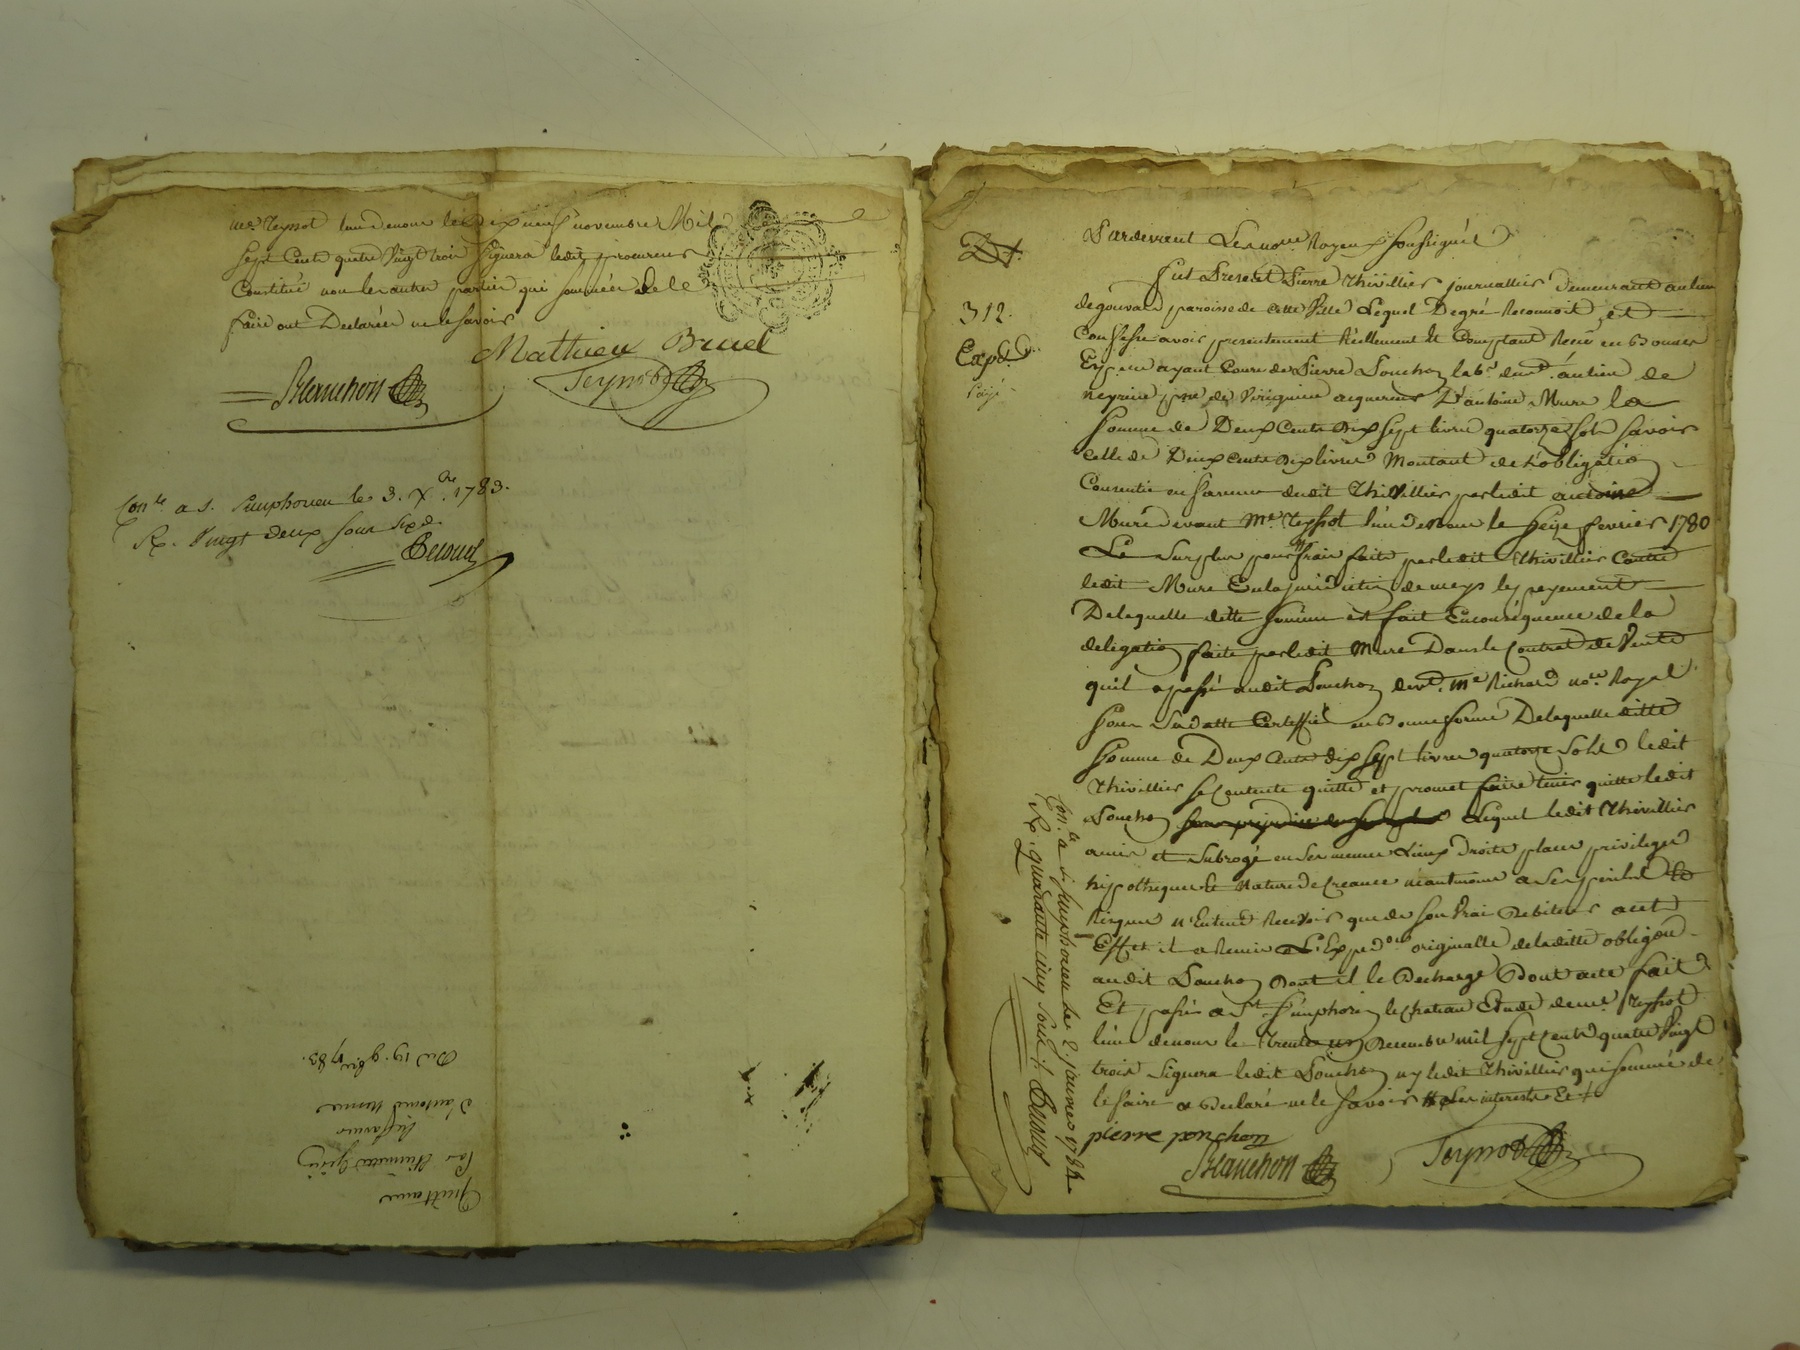 me. Teyssot l'un de nous le dix neuf novembre Mil
sept Cent quatre Vingt trois Signera ledit procureur
Constitué non les autres parties qui sommées de le
faire ont Declarées ne le savoir
Mathieu Bruel
Blanchon Teyssot
Con.le a s. simphorien le 3. Xbre. 1783.
R. Vingt deux sous six d.
Quittance
d'antoine
Du 19. 9bre 1783.
312.
Expd.
Payé
Pardevant Les nores. Royaux soussignés
fut Present Pierre Thivillier journallier demeurant au lieu
de gouvard paroisse de cette Ville Lequel De gré Reconnoit et
Confesse avoir presentement Reellement et Comptant Receu en Bonnes
Espece ayant Cours de Pierre Ponchon labr. demt. au lieu de
psse. de Viriginieu acquereur D'antoine Mure la
somme de Deux Cents Dix sept livres quatorze sols savoir
celle de Deux Cents Dix livres Montant de L'obligation
Consentie en faveur dudit Thivillier par ledit antoine
Mure devant Me. Teyssot l'un de nous le seize fevrier 1780
Le Surplus pour frais faits par ledit Thivillier Contre
ledit Mure En la juridiction de meys le payement
De laquelle ditte somme est fait En consequence de la
delegation faite par ledit Mure Dans le Contrat de Vente
qu'il a passé audit Ponchon devt. Me Richard nore. Royal
sous Sa datte Certiffié en Bonne forme De laquelle ditte
somme de Deux Cents dix sept livres quatorze sols ledit
Thivillier se Contente quitte et promet faire tenir quitte ledit
Ponchon Lequel ledit Thivillier
a mis et Subrogé en Ses memes Lieux Droits place privileges
hipotheques Et Nature de Creance neantmoins a Ses perils Et
Risques N'Entend Recevoir que de son Vrai Debiteur a cet
Effet il a Remis L'Expedon originalle de laditte obligaon
audit Ponchon Dont il le Decharge Dont acte fait
Et passé a St. Simphorien le chateau Etude de me. Teyssot
l'un de nous le trente un Decembre mil sept Cents quatre Vingt
trois Signera ledit Ponchon ny ledit Thivillier qui sommé de
le faire a Declaré ne le savoir # Les interests Et #
pierre ponchon
Blanchon Teyssot
Con.le a s. simphorien le 2. janvier 1784
R. quarante cinq sous